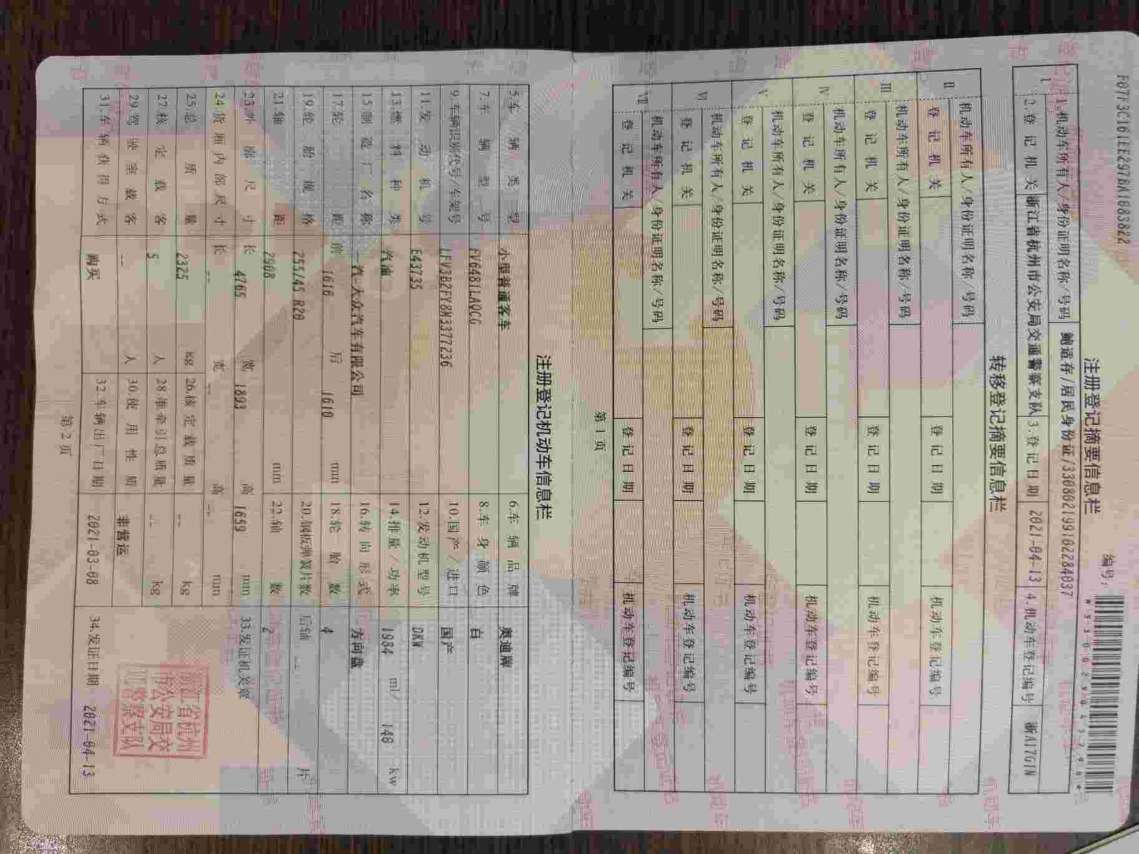 注册登记摘要信息栏
Ⅰ 1.机动车所有人/身份证明名称/号码 鲍适存/居民身份证/330802199102284037
2.登记机关 浙江省杭州市公安局交通警察支队 3.登记日期 2021-04-13 4.机动车登记编号 浙A17G1N
转移登记摘要信息栏
Ⅱ 机动车所有人/身份证明名称/号码
登记机关 登记日期 机动车登记编号
Ⅲ 机动车所有人/身份证明名称/号码
登记机关 登记日期 机动车登记编号
Ⅳ 机动车所有人/身份证明名称/号码
登记机关 登记日期 机动车登记编号
Ⅴ 机动车所有人/身份证明名称/号码
登记机关 登记日期 机动车登记编号
Ⅵ 机动车所有人/身份证明名称/号码
登记机关 登记日期 机动车登记编号
Ⅶ 机动车所有人/身份证明名称/号码
登记机关 登记日期 机动车登记编号
第1页
注册登记机动车信息栏
5.车辆类型 小型普通客车 6.车辆品牌 奥迪牌
7.车辆型号 FV6481LAQCG 8.车身颜色 白
9.车辆识别代号/车架号 LFV3B2FY8M3377236 10.国产/进口 国产
11.发动机号 E43735 12.发动机型号 DKW
13.燃料种类 汽油 14.排量/功率 1984 ml/ 140 kw
15.制造厂名称 一汽-大众汽车有限公司 16.转向形式 方向盘
17.轮距 前 1616 后 1610 mm 18.轮胎数 4
19.轮胎规格 255/45 R20 20.钢板弹簧片数 后轴 -- 片
21.轴距 2908 mm 22.轴数 2
23.外廓尺寸 长 4765 宽 1893 高 1659 mm 33.发证机关章
24.货厢内部尺寸 长 -- 宽 -- 高 -- mm
25.总质量 2325 kg 26.核定载质量 -- kg
27.核定载客 5 人 28.准牵引总质量 -- kg
29.驾驶室载客 -- 人 30.使用性质 非营运
31.车辆获得方式 购买 32.车辆出厂日期 2021-03-08 34.发证日期 2021-04-13
第2页
编号: